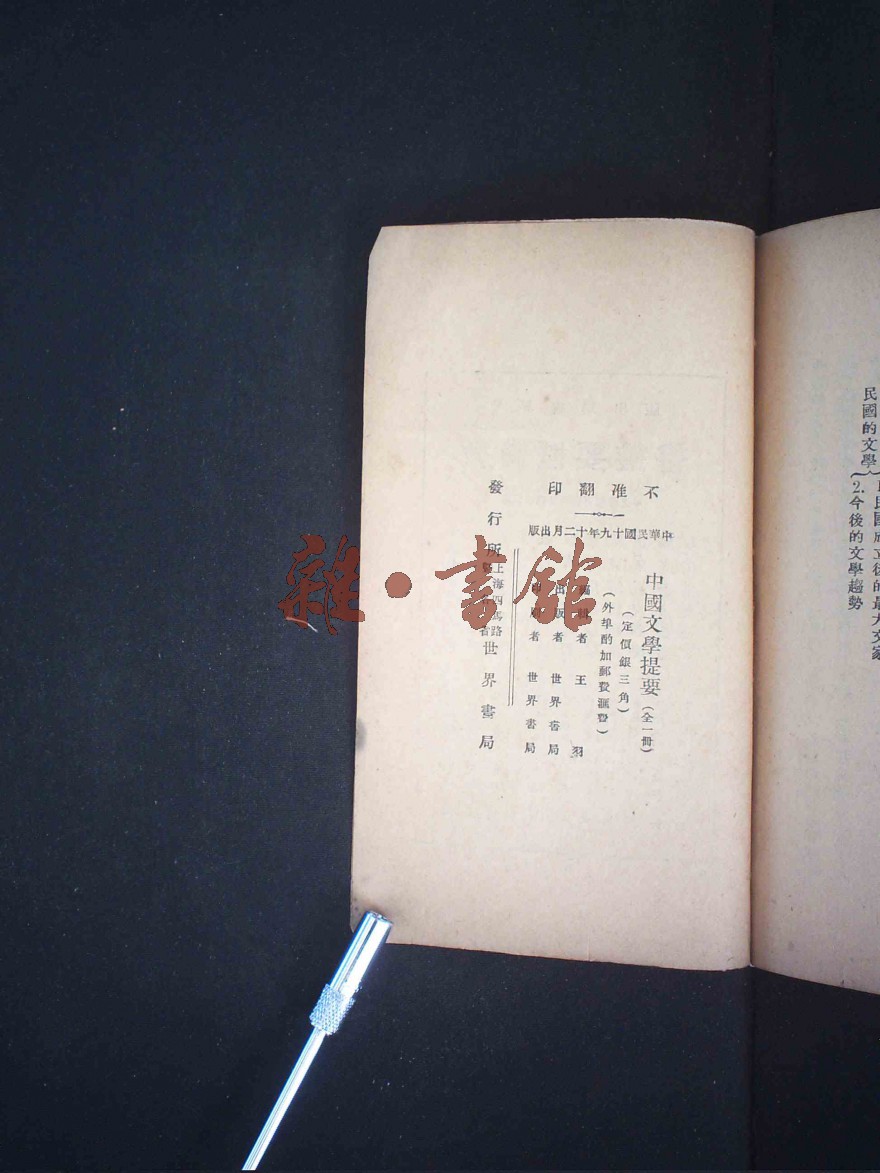 民國的文學
2.今後的文學趨勢
不准翻印
中華民國十九年十二月出版
中國文學提要(全一冊)
(定價銀三角)
(外埠酌加郵費滙費)
編輯者 王羽
出版者 世界書局
印刷者 世界書局
發行所 上海四馬路 世界書局
雜·書館